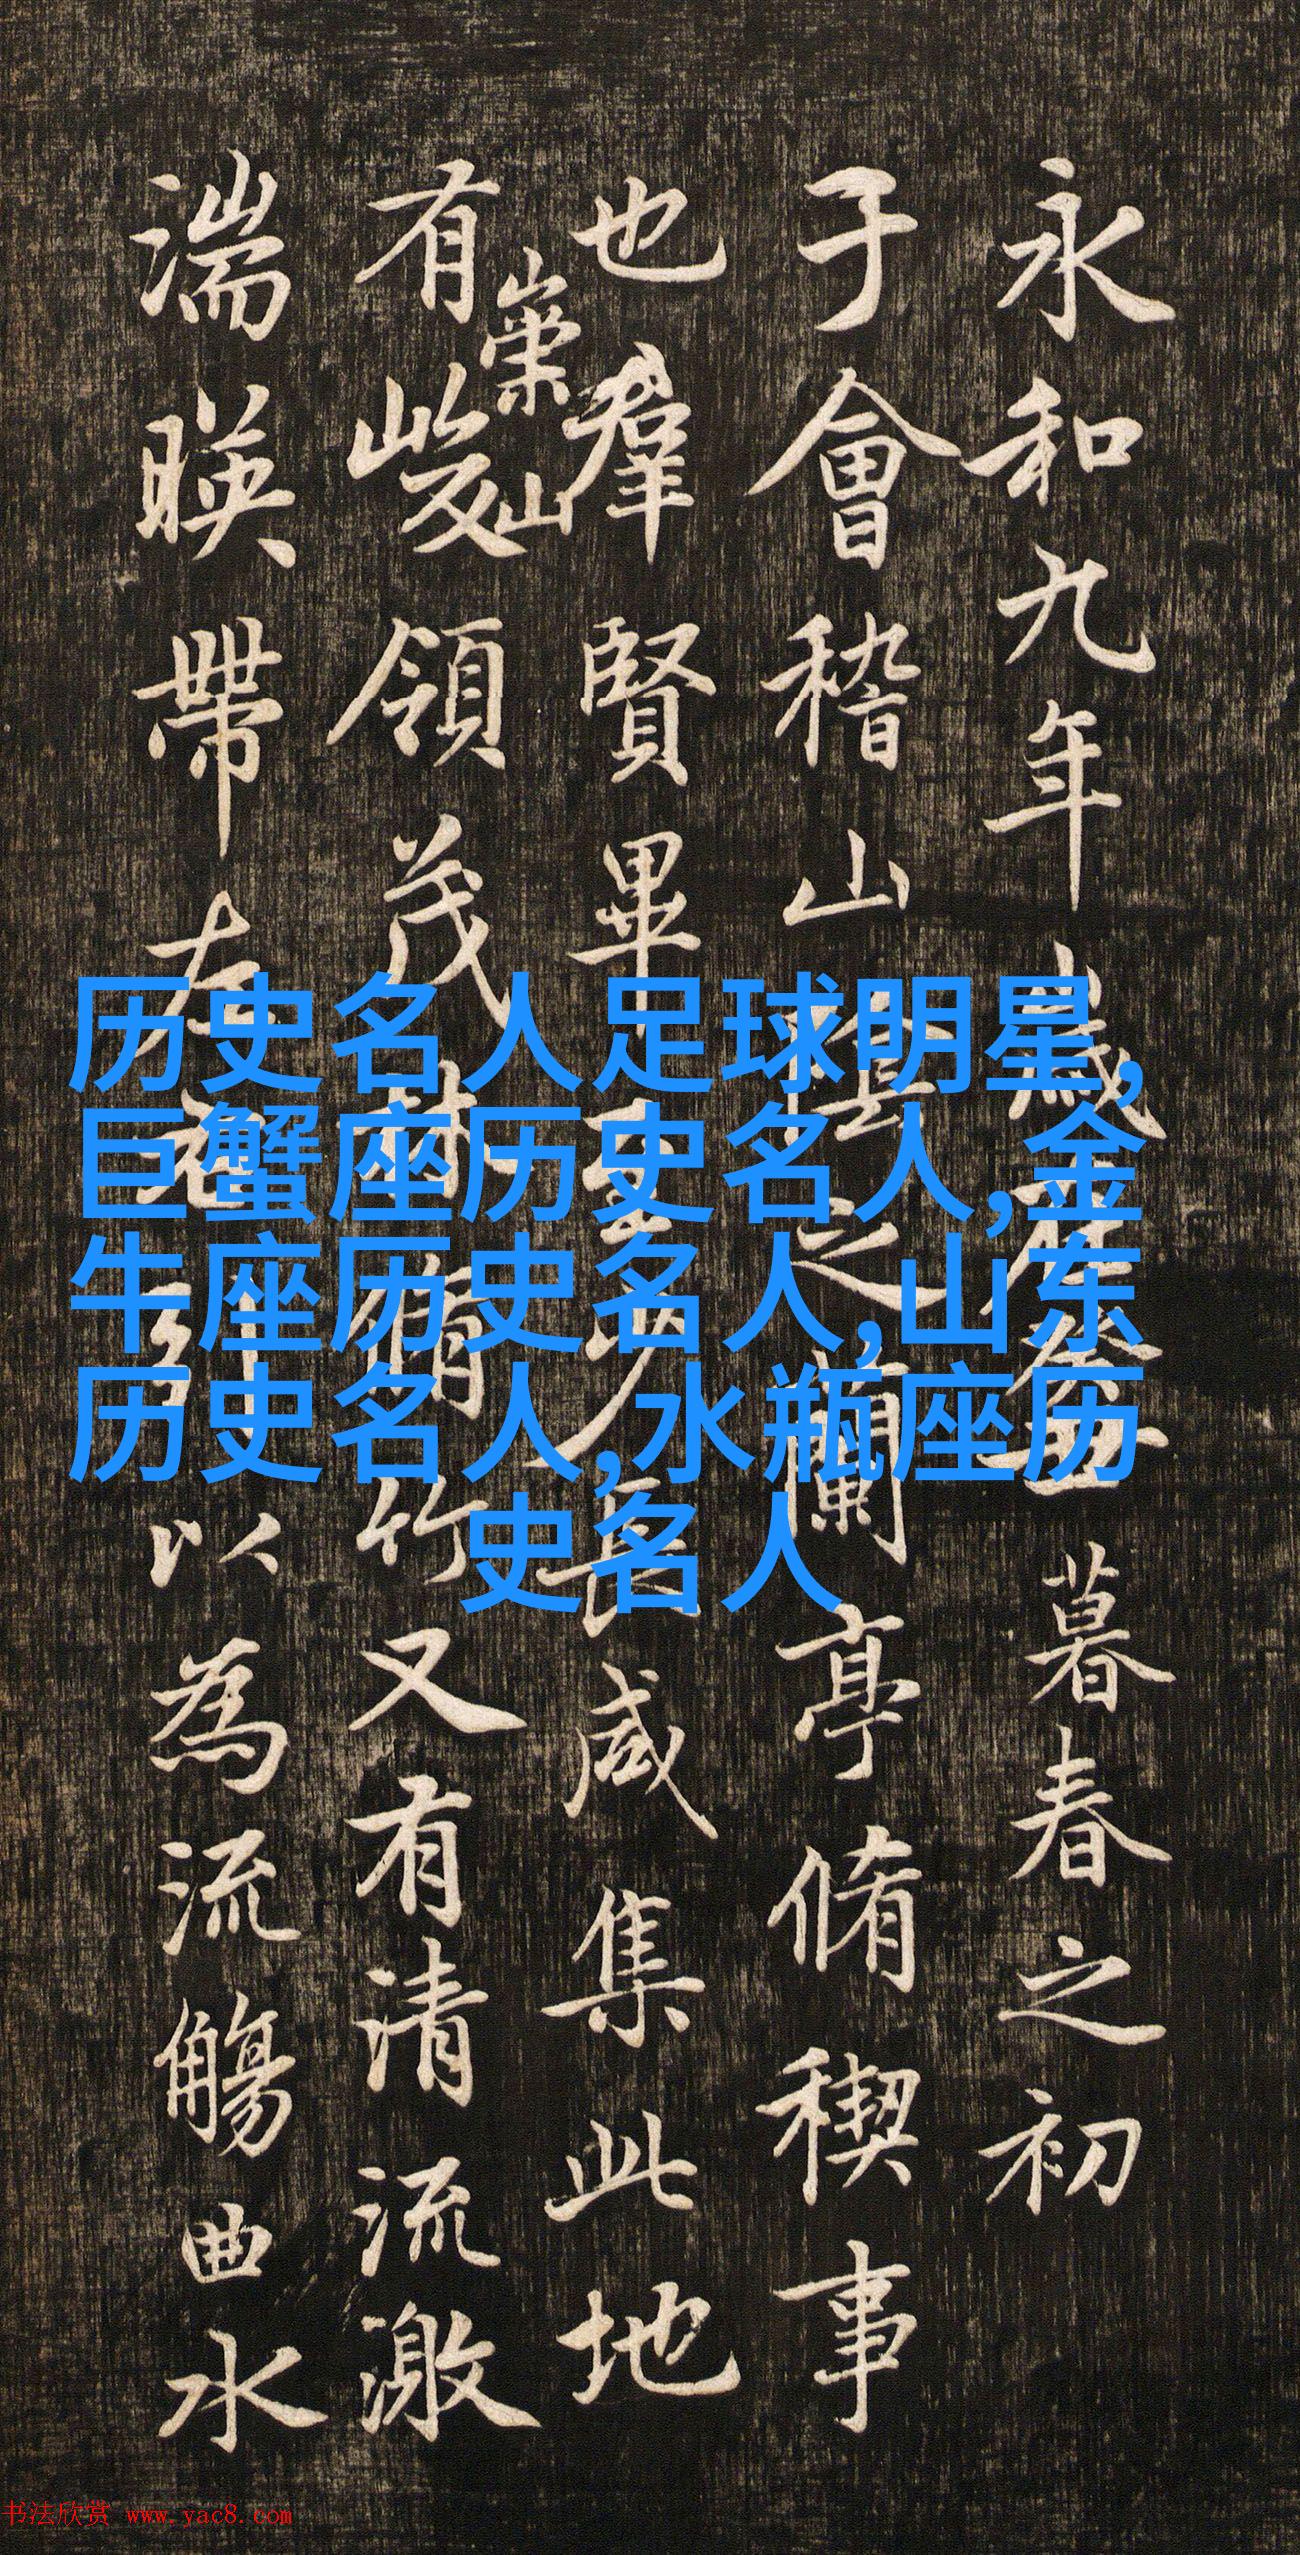 永和九年歲在癸丑暮春之初
于會稽山陰之蘭亭脩稧事
也羣賢畢至少長咸集此地
有崇山峻領茂林脩竹又有清流激
湍暎帶左右引以為流觴曲水
历史名人足球明星,
巨蟹座历史名人,金
牛座历史名人,山东
历史名人,水瓶座历
史名人
书法欣赏 www.yac8.com